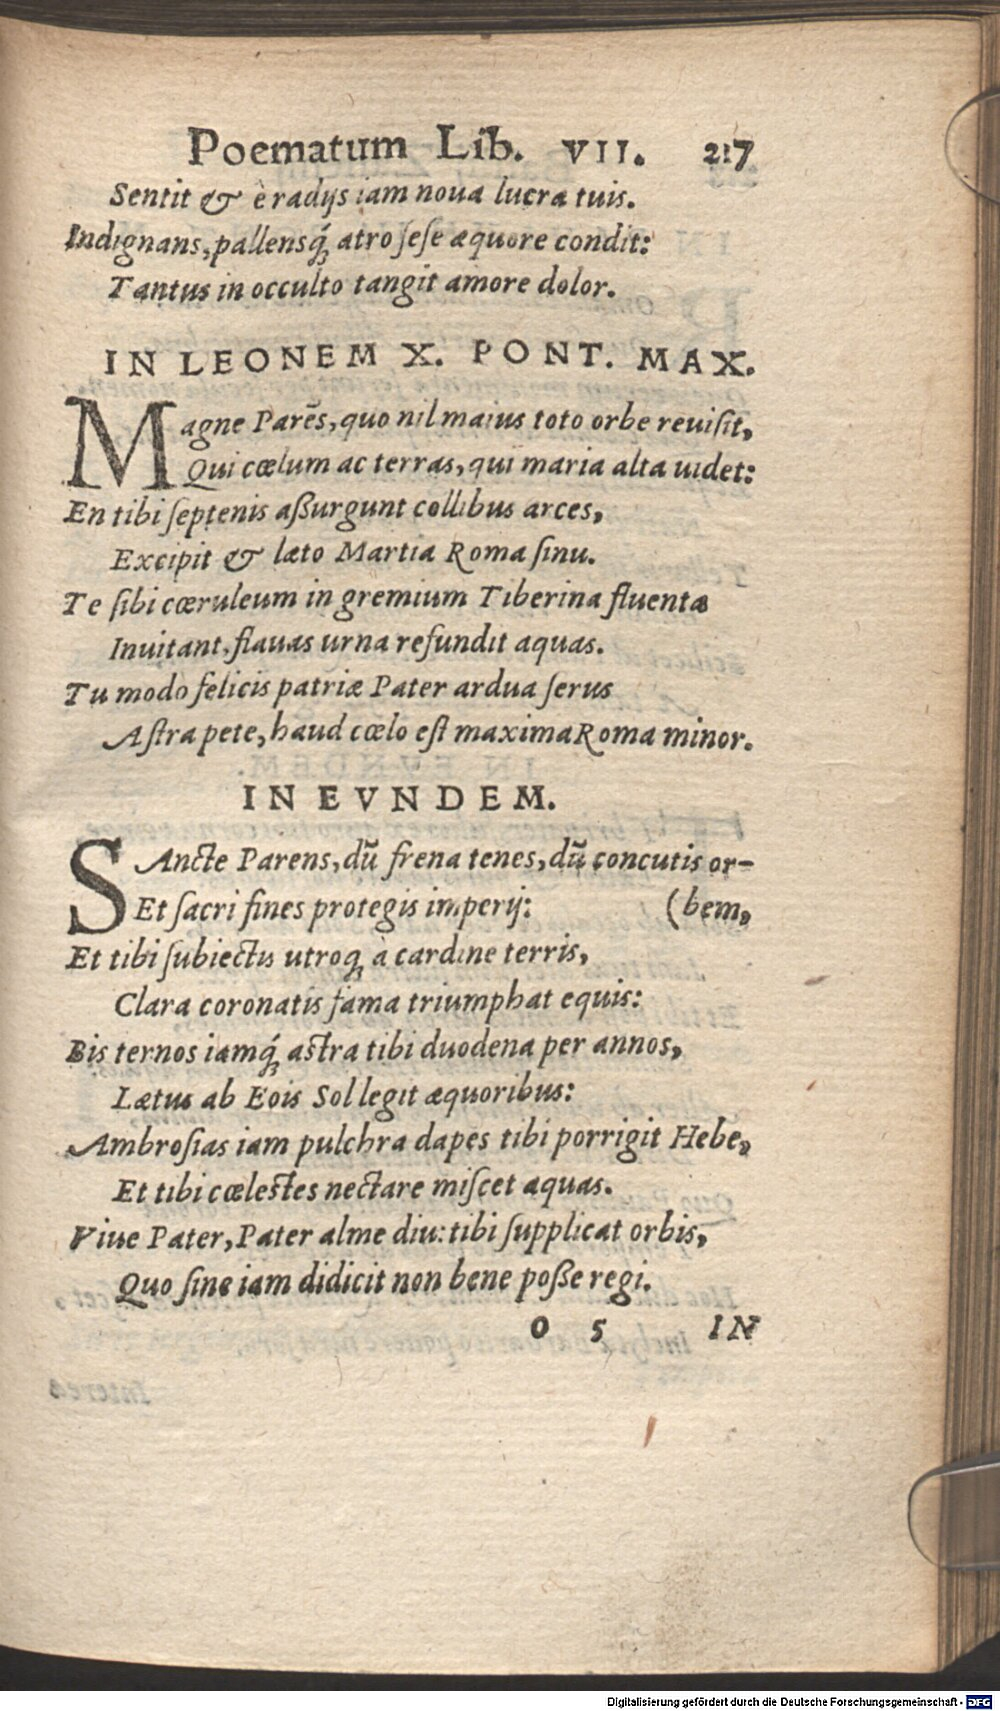 Poematum Lib. VII. 217
Sentit & è radijs iam noua lucra tuis.
Indignans, pallensq́; atro sese æquore condit:
Tantus in occulto tangit amore dolor.
IN LEONEM X. PONT. MAX.
Magne Parẽs, quo nil maius toto orbe reuisit,
Qui cœlum ac terras, qui maria alta uidet:
En tibi septenis aßurgunt collibus arces,
Excipit & læto Martia Roma sinu.
Te sibi cœruleum in gremium Tiberina fluenta
Inuitant, flauas urna refundit aquas.
Tu modo felicis patriæ Pater ardua serus
Astra pete, haud cœlo est maxima Roma minor.
IN EVNDEM.
SAncte Parens, dũ frena tenes, dũ concutis or-
Et sacri fines protegis imperij: (bem,
Et tibi subiectis utroq; à cardine terris,
Clara coronatis fama triumphat equis:
Bis ternos iamq́; astra tibi duodena per annos,
Lætus ab Eois Sol legit æquoribus:
Ambrosias iam pulchra dapes tibi porrigit Hebe,
Et tibi cœlestes nectare miscet aquas.
Viue Pater, Pater alme diu: tibi supplicat orbis,
Quo sine iam didicit non bene poße regi.
O 5 IN
Digitalisierung gefördert durch die Deutsche Forschungsgemeinschaft - DFG